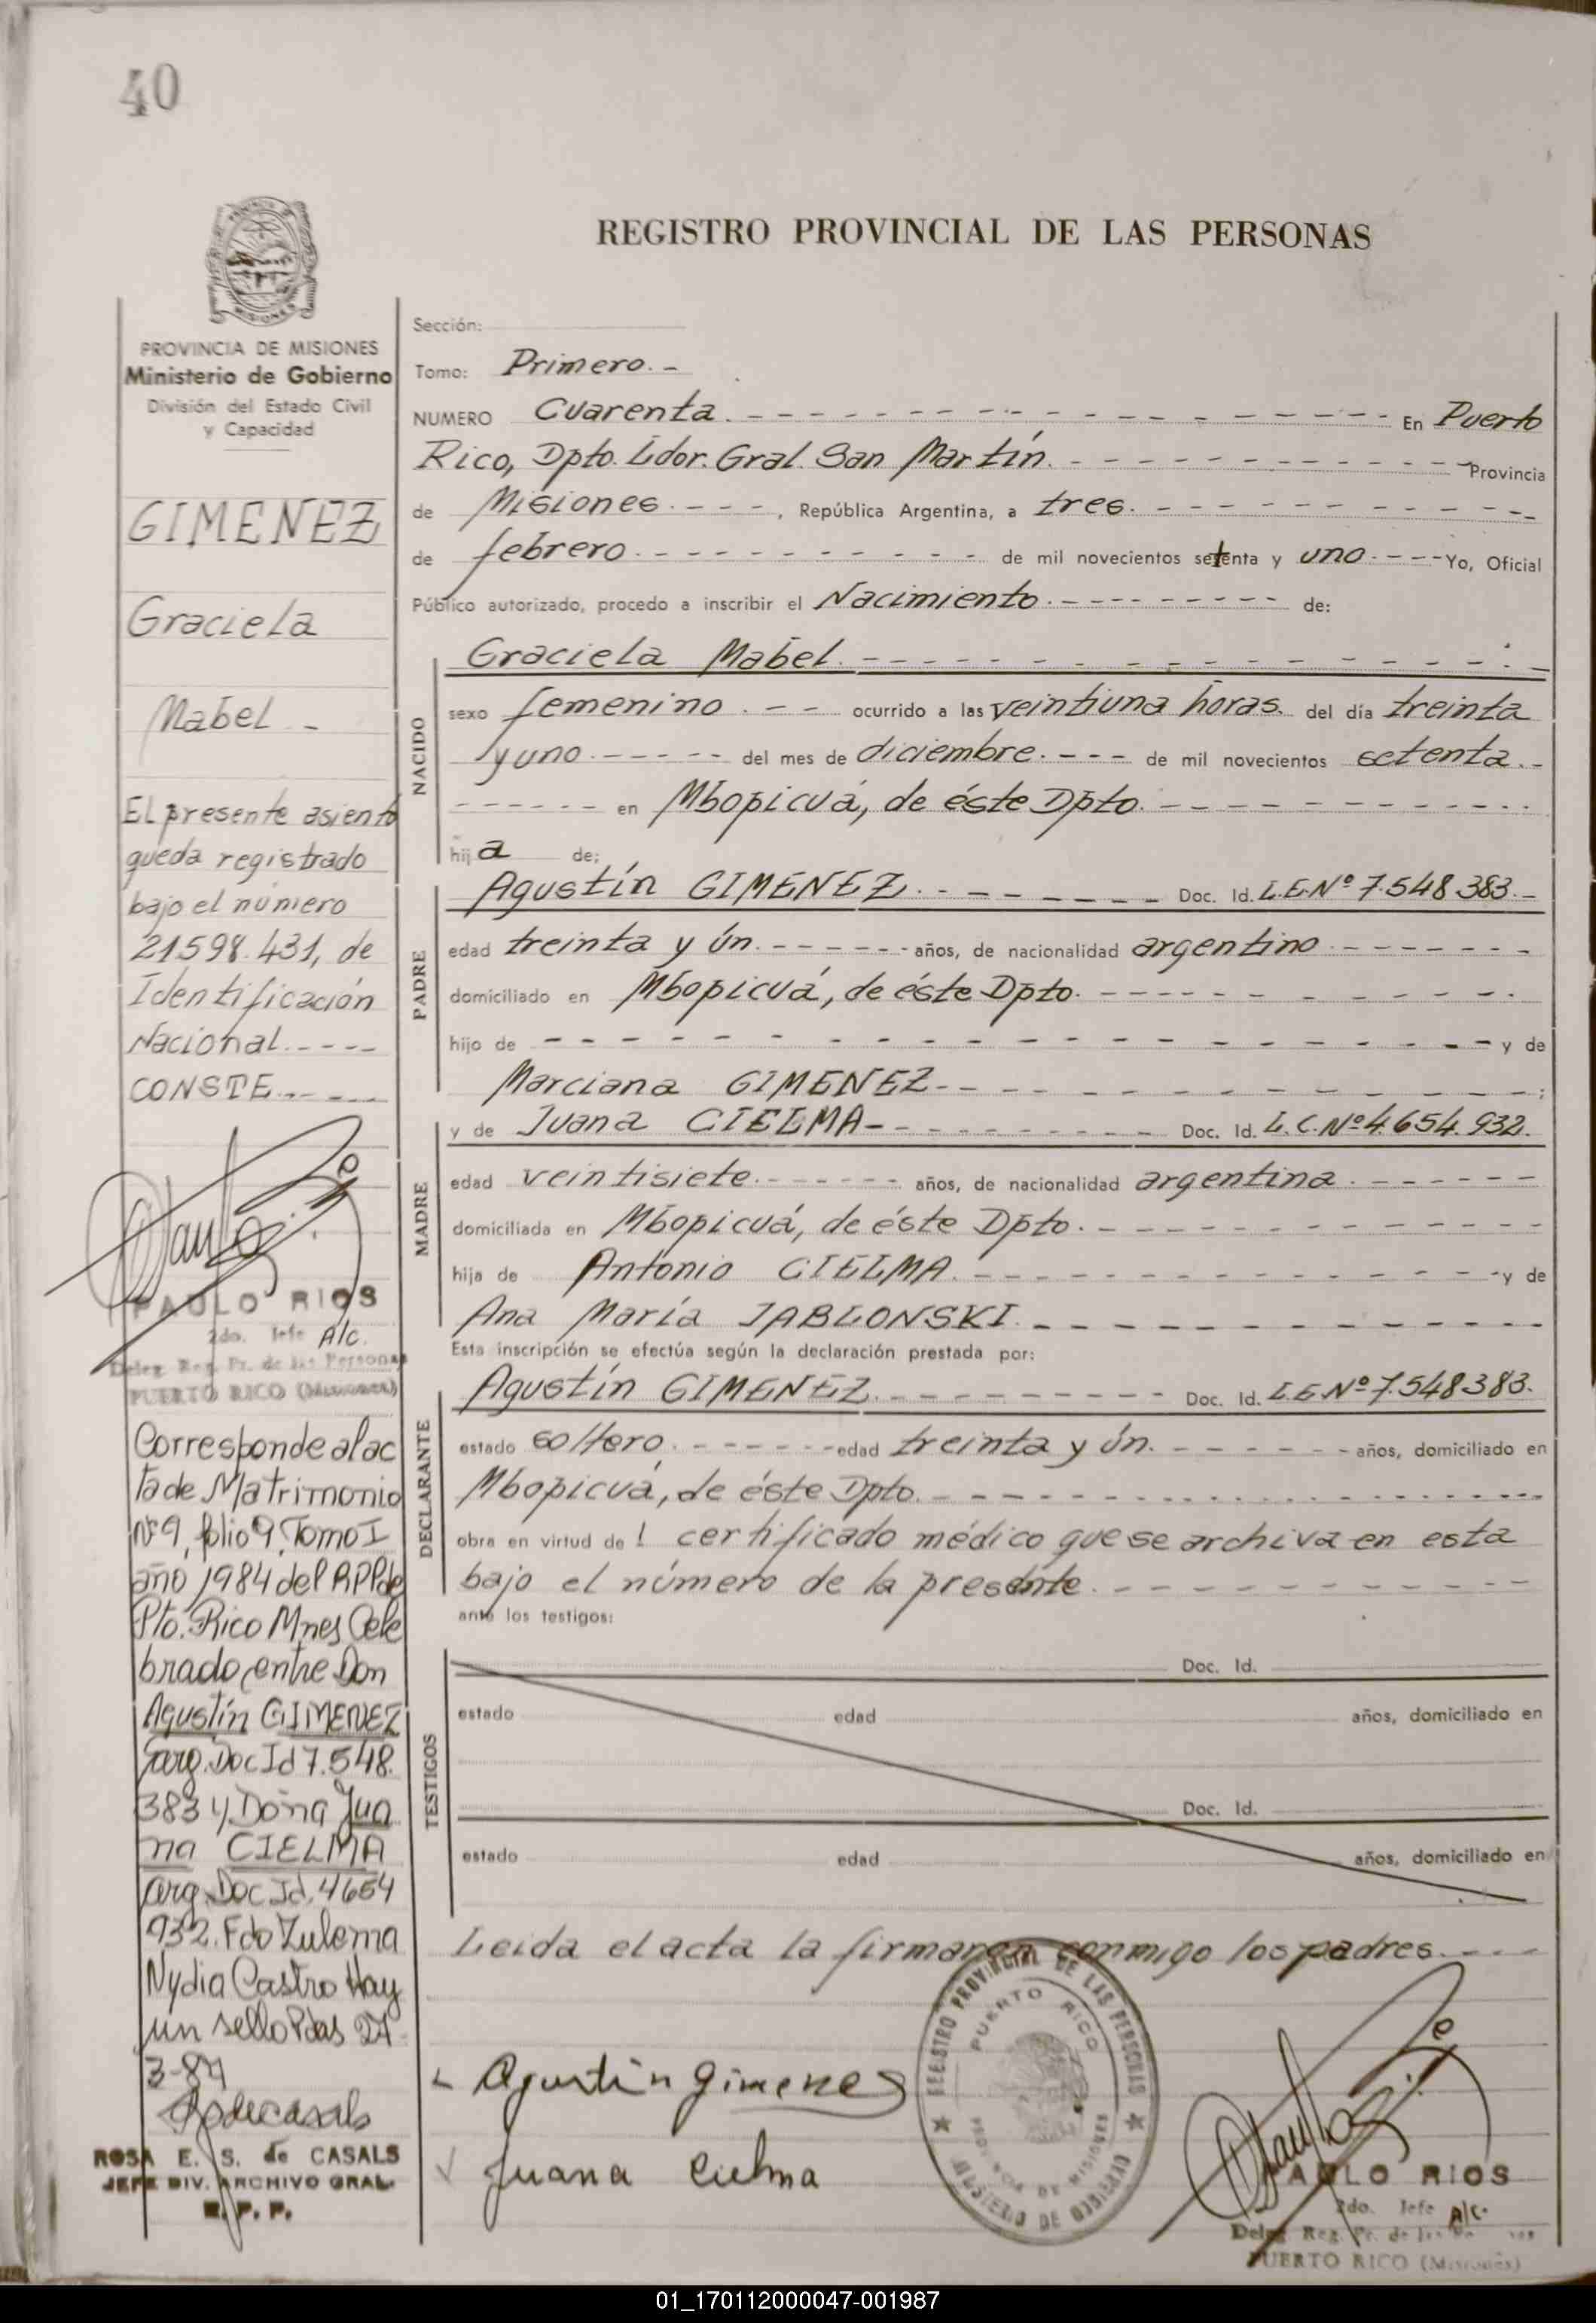 40
REGISTRO PROVINCIAL DE LAS PERSONAS
PROVINCIA DE MISIONES
Ministerio de Gobierno
División del Estado Civil
y Capacidad
GIMENEZ
Graciela
Mabel -
El presente asiento
queda registrado
bajo el número
21598.431, de
Identificación
Nacional.----
CONSTE.-----
PAULO RIOS
2do. Jefe A/c.
Deleg. Reg. Pr. de las Personas
PUERTO RICO (Misiones)
Corresponde al ac
ta de Matrimonio
Nº 9, folio 9, Tomo I
año 1984 del RPP de
Pto. Rico Mnes Cele
brado entre Don
Agustín GIMENEZ
arg. Doc Id 7.548.
383 y Doña Jua
na CIELMA
arg. Doc Id. 4654
932. Fdo Zulema
Nydia Castro Hay
un sello Pdas 27-
3-84
ROSA E. S. de CASALS
JEFE DIV. ARCHIVO GRAL.
R. P. P.
Sección:
Tomo: Primero.-
NUMERO Cuarenta.- En Puerto
Rico, Dpto. Ldor. Gral. San Martín.- Provincia
de Misiones.----, República Argentina, a tres.-
de febrero.- de mil novecientos setenta y uno.---- Yo, Oficial
Público autorizado, procedo a inscribir el Nacimiento.- de:
NACIDO
Graciela Mabel.-
sexo femenino.-- ocurrido a las veintiuna horas. del día treinta
y uno.- del mes de diciembre.---- de mil novecientos setenta.-
------ en Mbopicuá, de éste Dpto.-
hija de;
PADRE
Agustín GIMENEZ.- Doc. Id. L.E.Nº 7.548.383.-
edad treinta y ún.- años, de nacionalidad argentino.-
domiciliado en Mbopicuá, de éste Dpto.-
hijo de - y de
Marciana GIMENEZ.- ;
MADRE
y de Juana CIELMA.- Doc. Id. L.C.Nº 4.654.932.
edad veintisiete.- años, de nacionalidad argentina.-
domiciliada en Mbopicuá, de éste Dpto.-
hija de Antonio CIELMA.- y de
Ana María JABLONSKI.-
Esta inscripción se efectúa según la declaración prestada por:
DECLARANTE
Agustín GIMENEZ.- Doc. Id. L.E.Nº 7.548383.
estado soltero.- edad treinta y ún.- años, domiciliado en
Mbopicuá, de éste Dpto.-
obra en virtud del certificado médico que se archiva en esta
bajo el número de la presente.-
ante los testigos:
TESTIGOS
Doc. Id.
estado edad años, domiciliado en
Doc. Id.
estado edad años, domiciliado en
Leída el acta la firmaron conmigo los padres.----
Agustin Gimenes
Juana Cielma
REGISTRO PROVINCIAL DE LAS PERSONAS
PUERTO RICO
MINISTERIO DE GOBIERNO
PAULO RIOS
2do. Jefe A/c.
Deleg. Reg. Pr. de las
PUERTO RICO (Misiones)
01_170112000047-001987